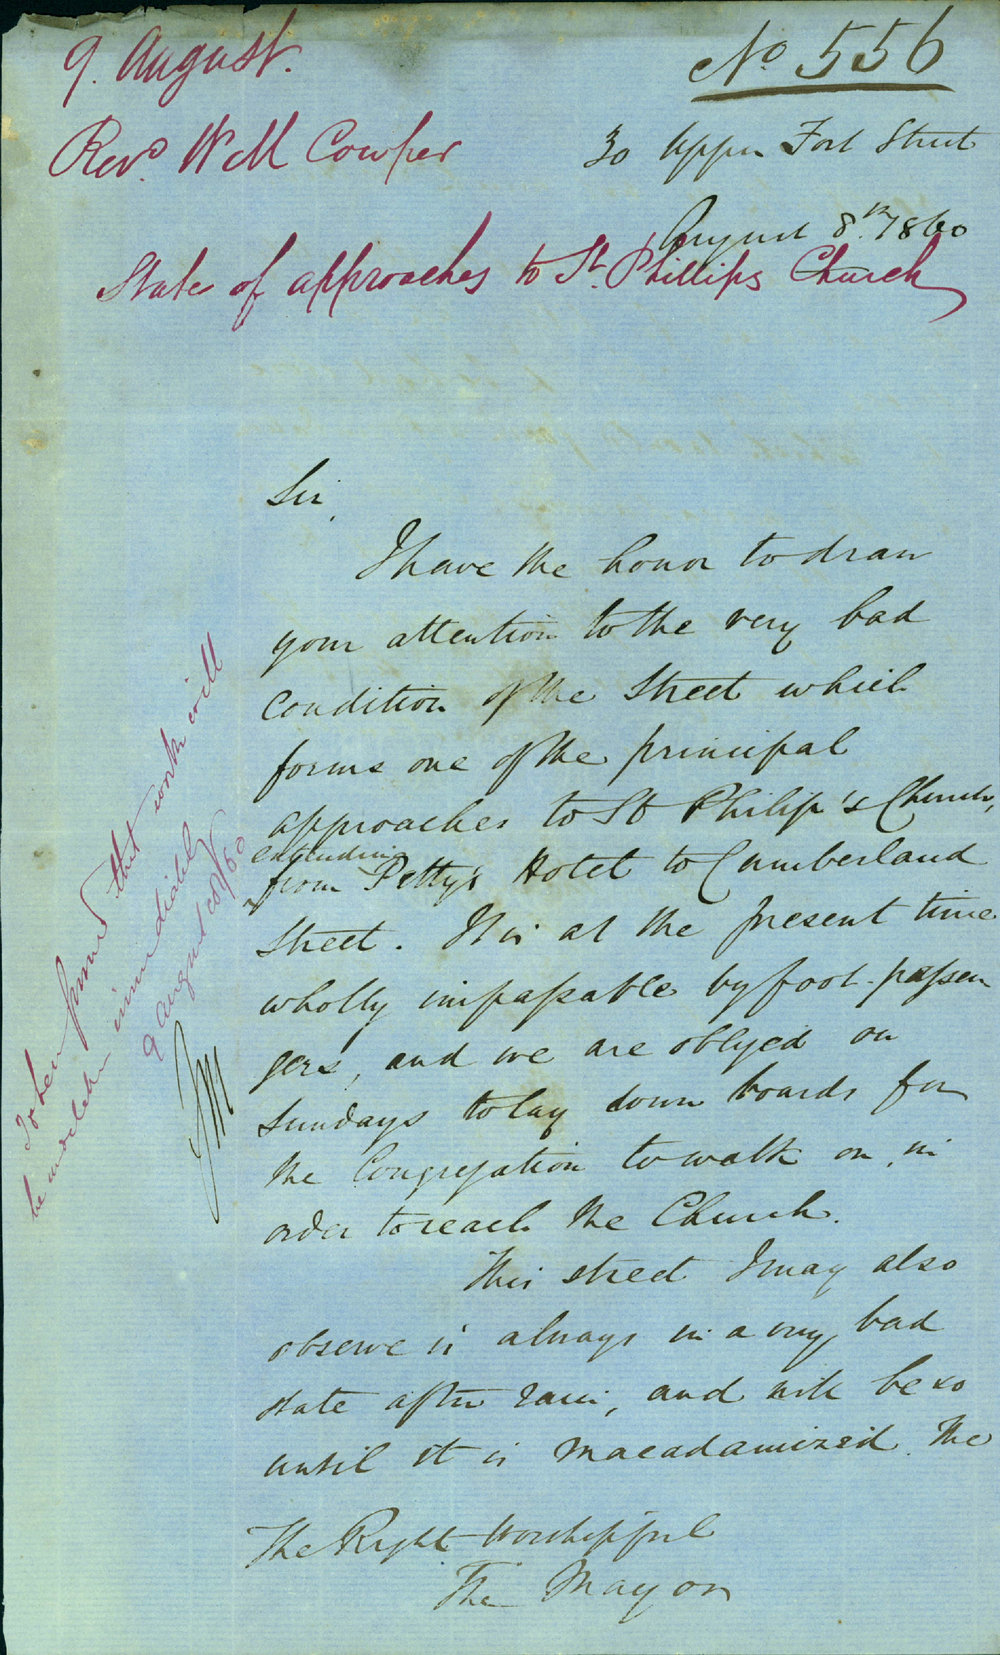 9. August.
No. 556
Revd. W M Cowper
30 Upper Fort Street
August 8th 1860
State of approaches to St. Phillips Church
Sir,
I have the honor to draw
your attention to the very bad
condition of the Street which
forms one of the principal
approaches to St Philip's Church,
extending
from Petty's Hotel to Cumberland
Street. It is at the present time
wholly impassable by foot-passen
gers, and we are obliged on
Sundays to lay down boards for
the Congregation to walk on, in
order to reach the Church.
This street I may also
observe is always in a very bad
state after rain, and will be so
until it is macadamized. The
The Right Worshipful
The Mayor
To be informed that work will
be undertaken immediately
9 August 1860